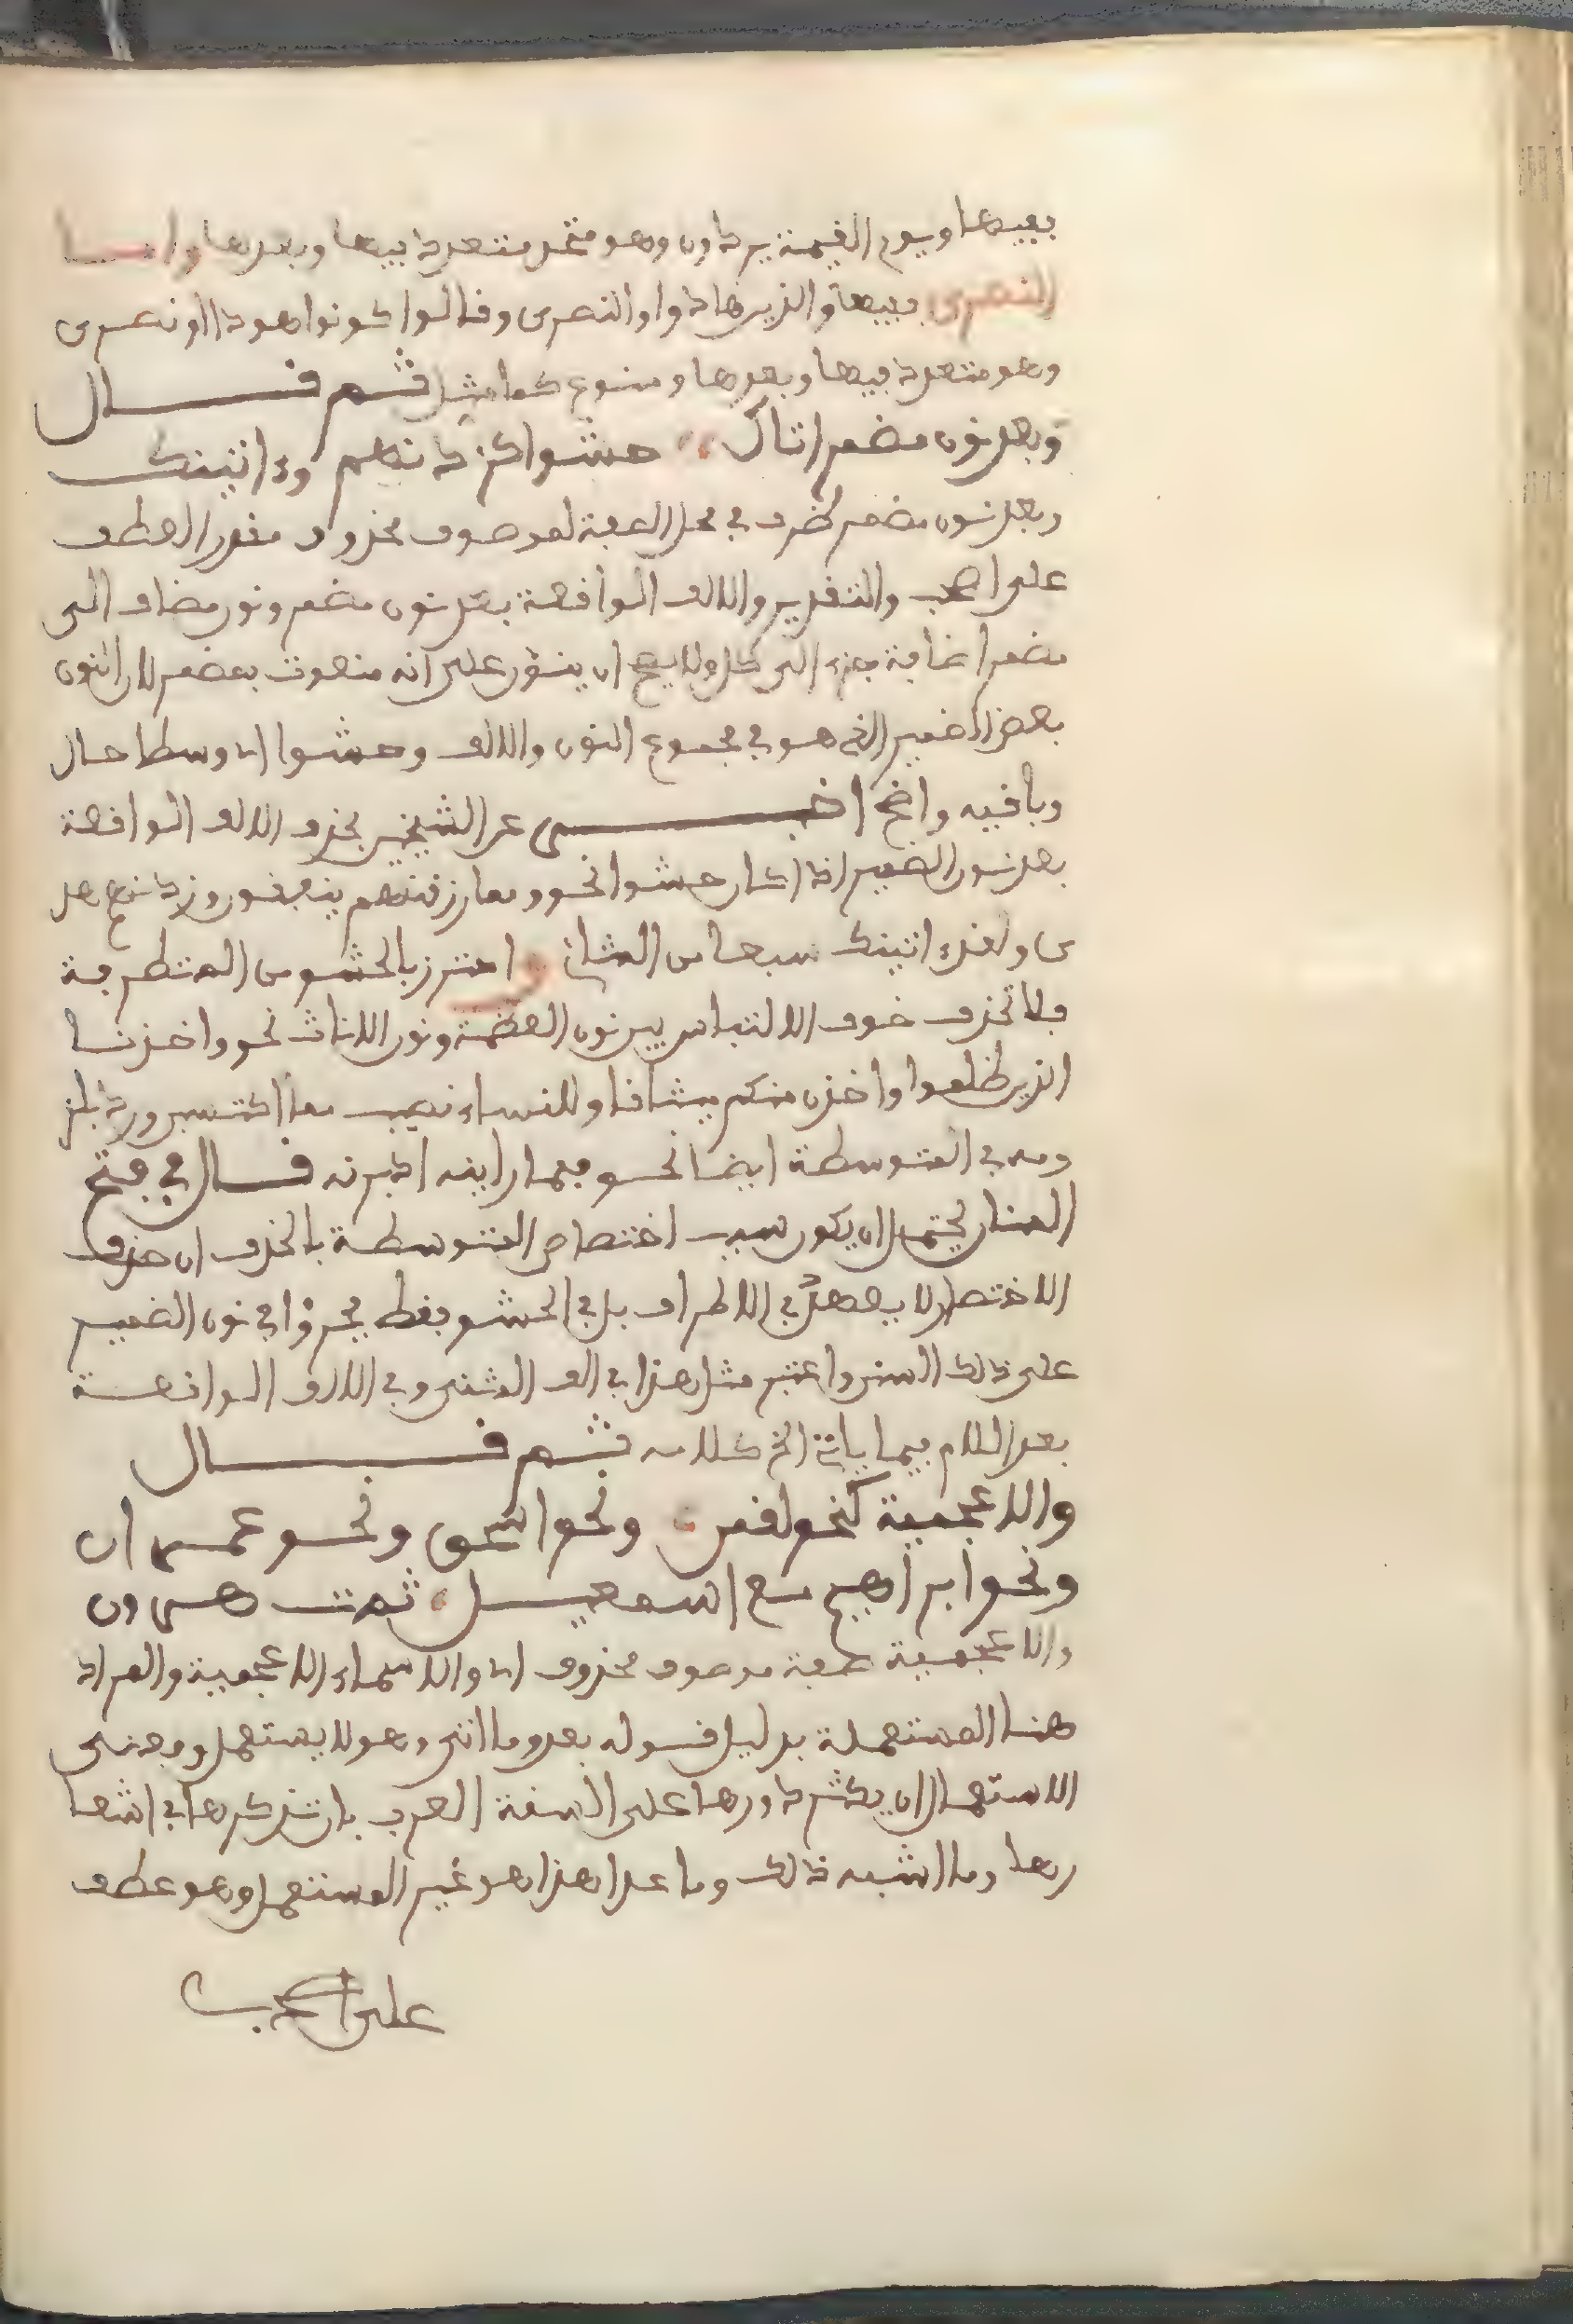 ففيها ويوم القيمة يردون وهو متحد متعدد فيها وبعدها واما
النصرى ففيها والذين هادوا والنصرى وقالوا كونوا هودا او نصرى
وهو متعدد فيها وبعدها ومنوع كما مثل ثم قال
وبعد نون مضمر اتاك حشوا كزدنهم وءاتينك
وبعد نون مضمر ظرف في محل الصفة لموصوف محذوف مقدر العطف
على اصحب والتقدير والالف الواقعة بعد نون مضمر ونون مضاف الى
مضمر اضافة جزء الى كل ولا يصح ان ينون على انه منعوت بمضمر لان النون
بعض الضمير الذي هو في مجموع النون والالف وحشوا اي وسطا حال
وباقيه واضح اخبر عن الشيخين بحذف الالف الواقعة
بعد نون الضمير اذا كان حشوا نحو ومما رزقنهم ينفقون وزدنهم هد
ى ولقد ءاتينك سبعا من المثاني واحترز بالحشو من المتطرفة
فلا تحذف خوف الالتباس بين نون العظمة ونون الاناث نحو واخذنا
الذين ظلموا واخذن منكم ميثاقا وللنساء نصيب مما اكتسبن وردنا
ومه في المتوسطة ايضا نحو فلما راينه اكبرنه قال في فتح
المنان يحتمل ان يكون سبب اختصاص المتوسطة بالحذف ان حذف
الاختصار لا يحصل في الاطراف بل في الحشو فقط فجروا في نون الضمير
على ذلك السنن واعتبر مثل هذا في الف المثنى وفي الالف الواقعة
بعد اللام فيما ياتي الخ كلامه ثم قال
والاعجمية كنحو لقمن ونحو اسحق ونحو عمران
ونحو ابرهيم مع اسمعيل ثمت هرون
والاعجمية صفة موصوف محذوف اي والاسماء الاعجمية والمراد
هنا المستعملة بدليل قوله بعد وما اتى وهو لا يستعمل ومعنى
الاستعمال ان يكثر دورها على السنة العرب بان تذكرها في اشعا
رها وما اشبه ذلك وما عدا هذا هو غير المستعمل وهو عطف
على